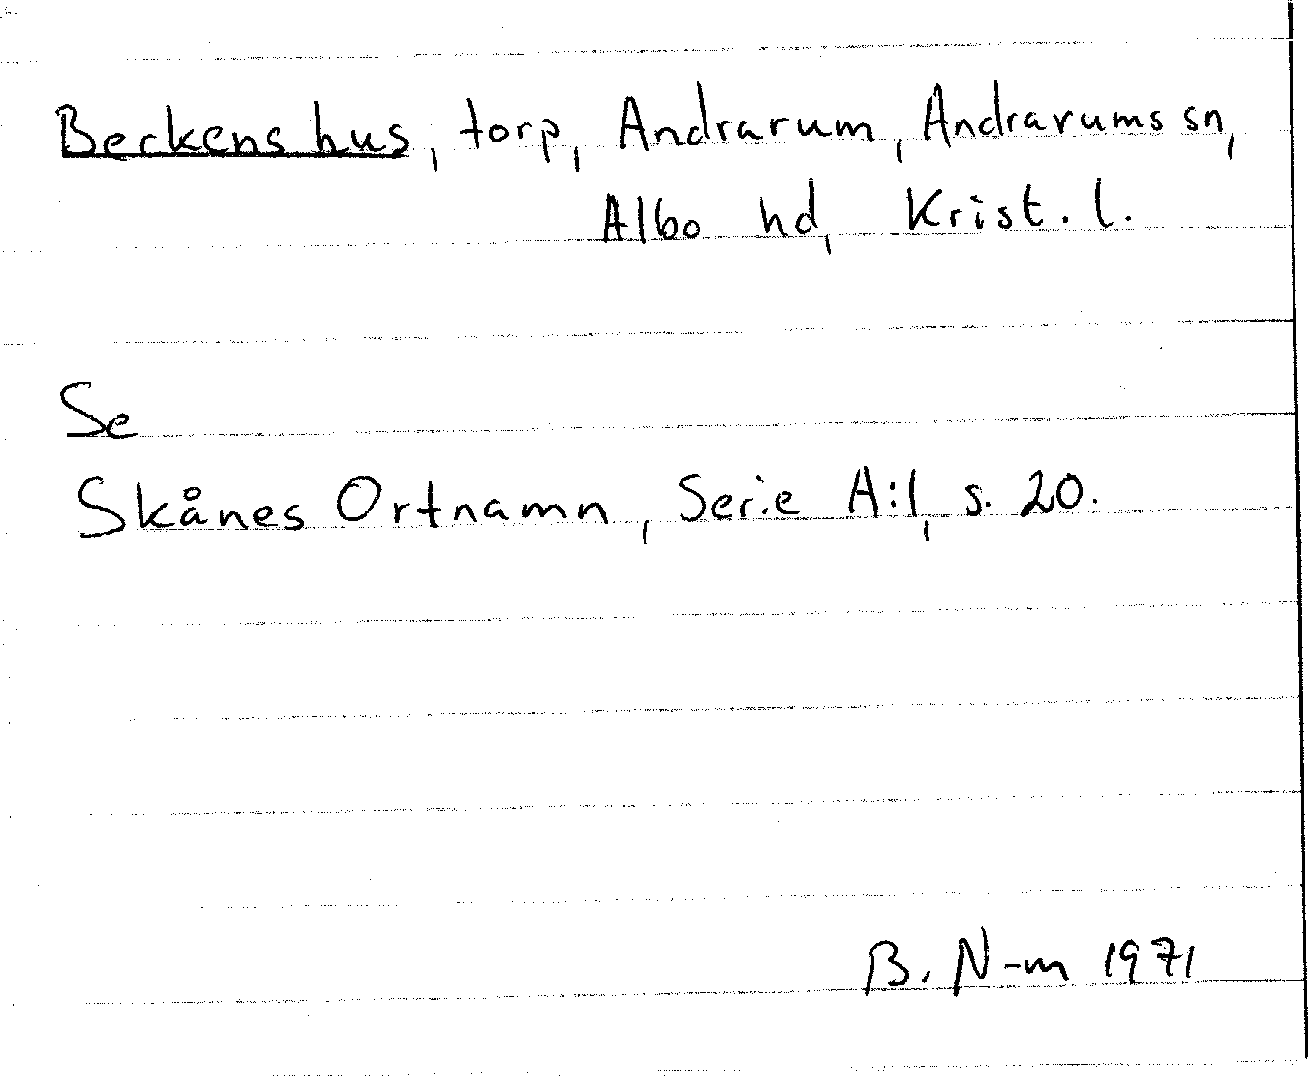 Beckens hus, torp, Andrarum, Andrarums sn,
Albo hd, Krist. l.
Se
Skånes Ortnamn, Serie A:1, s. 20.
B. N-m 1971